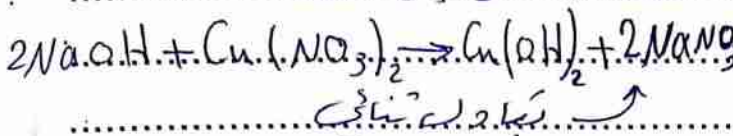 2NaOH + Cu(NO₃)₂ → Cu(OH)₂ + 2NaNO₃
تبادل ثنائي